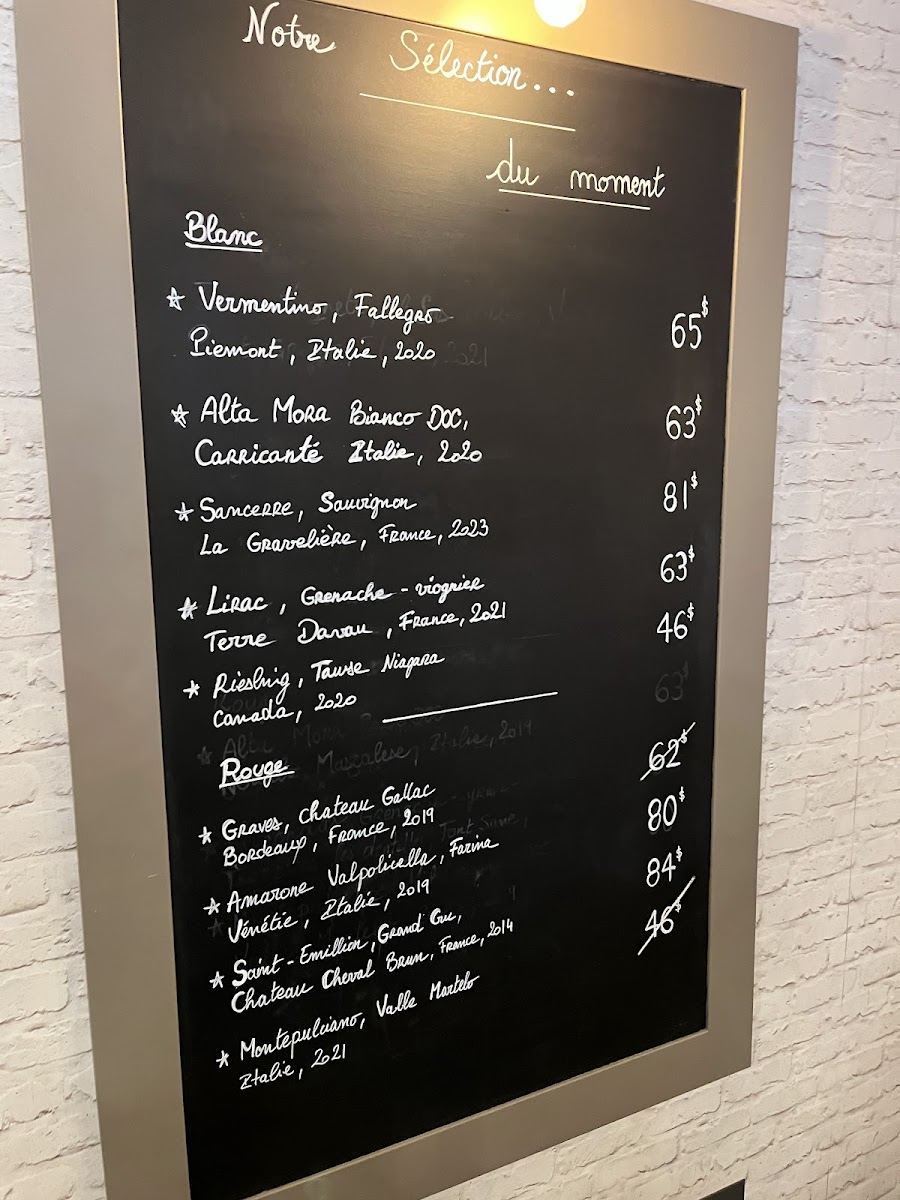 Notre Sélection...
du moment
Blanc
☆ Vermentino, Fallegro 65$
Piemont, Italie, 2020
☆ Alta Mora Bianco DOC, 63$
Carricanté Italie, 2020
☆ Sancerre, Sauvignon 81$
La Gravelière, France, 2023
☆ Lirac, Grenache-viognier 63$
Terre Davau, France, 2021
☆ Riesling, Tawse Niagara 46$
Canada, 2020
Rouge
☆ Graves, Chateau Gallac 62$
Bordeaux, France, 2019
☆ Amarone Valpolicella, Farina 80$
Vénétie, Italie, 2019
☆ Saint-Emillion, Grand Cru, 84$
Chateau Cheval Brun, France, 2014
☆ Montepulciano, Valle Martelo 46$
Italie, 2021